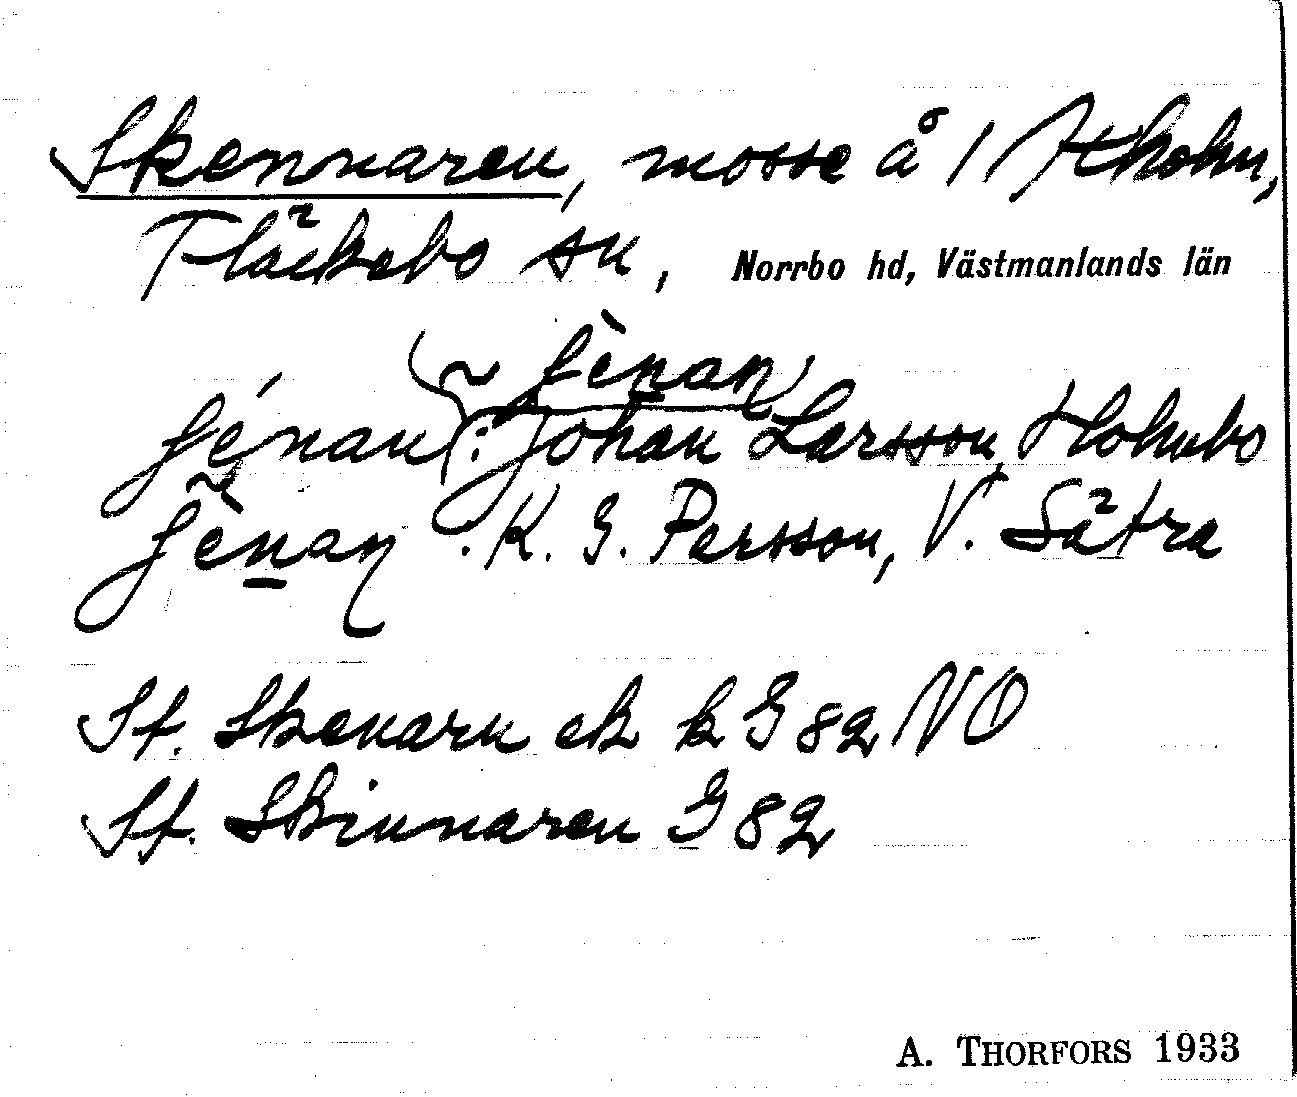 Skennaren, mosse å 1
Fläckebo sn, Norrbo hd, Västmanlands län
~ fènan
fénan : Johan Larsson, Holmbo
fènan . K. G. Persson, V. Sätra
St. Skenarn ek k G 82 NO
St. Skinnaren G 82
A. THORFORS 1933